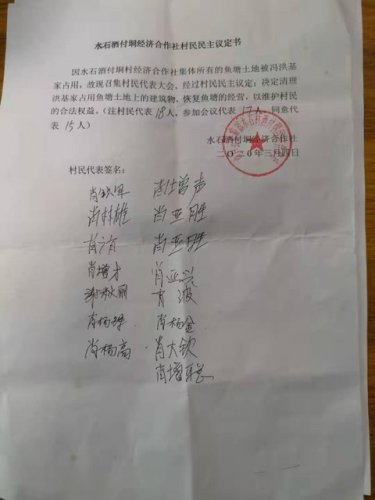 水石酒付垌经济合作社村民民主议定书
因水石酒付垌村经济合作社集体所有的鱼塘土地被冯洪基
家占用，故现召集村民代表大会，经过村民民主议定：决定清理
洪基家占用鱼塘土地上的建筑物，恢复鱼塘的经营，以维护村民
的合法权益。（注村民代表 18人，参加会议代表 17人，同意代
表 15人）
水石酒付垌经济合作社
二〇二〇年三月四日
村民代表签名：
肖林雄 肖亚胜
肖亚胜
肖增才 肖亚兴
肖波
肖杨金
肖杨高 肖大钦